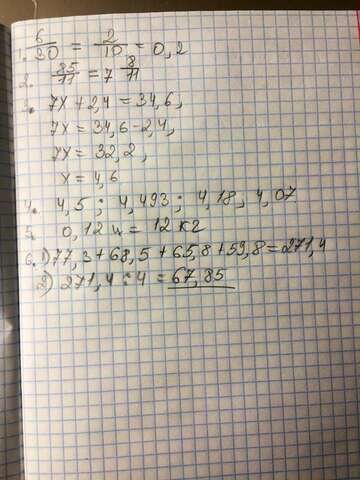 1. 6/30 = 2/10 = 0,2
2. 85/11 = 7 8/11
3. 7x + 2,4 = 34,6,
7x = 34,6 - 2,4,
7x = 32,2,
x = 4,6
4. 4,5; 4,493; 4,18, 4,07
5. 0,12 ц = 12 кг
6. 1) 77,3 + 68,5 + 65,8 + 59,8 = 271,4
2) 271,4 : 4 = 67,85